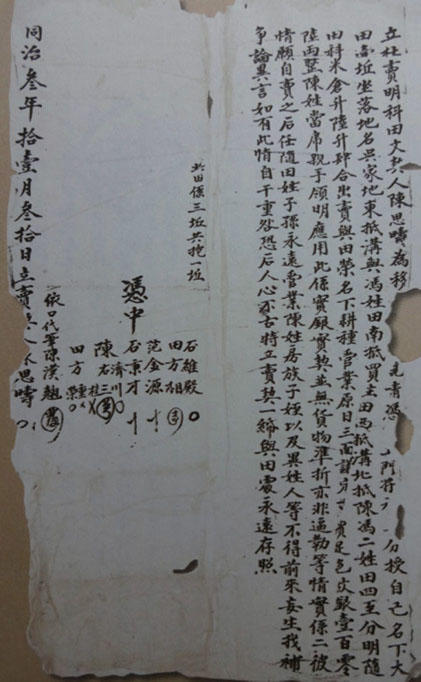 立杜賣明科田文契人陳思疇為移
憑
分授自己名下大
田壹坵坐落地名吳家地東抵溝與馮姓田南抵買主田西抵溝地抵陳馮二姓田四至分明隨
田科米倉升陸升肆合出賣與田榮名下耕種管業原日三面議
賣足色紋銀壹百零
陸両整陳姓當席親手領明應用此係實銀實契並無貨物準折亦非逼勒等情實係二彼
情願自賣之后任隨田姓子孫永遠管業陳姓房族子姪以及異姓人等不得前來妄生找補
争論異言如有此情自干重咎恐后人心不古特立賣契一紙與田處永遠存照
此田係三坵共挖一坵
憑中
石維殿
田方
范金源
石秉才
陳
濟川
石三
田方
依口代筆陳漢
同治叁年拾壹月叁拾日立賣契人陳思疇